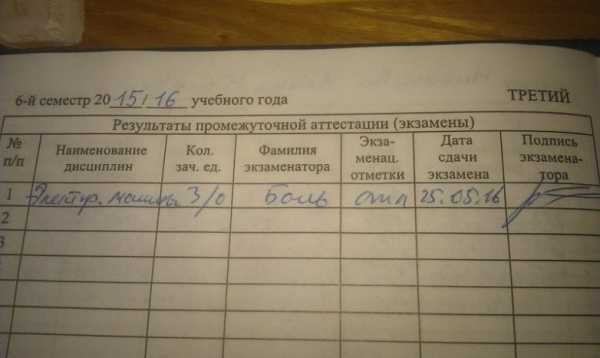 6-й семестр 2015/16 учебного года ТРЕТИЙ
Результаты промежуточной аттестации (экзамены)
№ п/п Наименование дисциплин Кол. зач. ед. Фамилия экзаменатора Экза-менац. отметки Дата сдачи экзамена Подпись экзамена-тора
1 Электр. машины З/о Боль отл 25.05.16
2
3